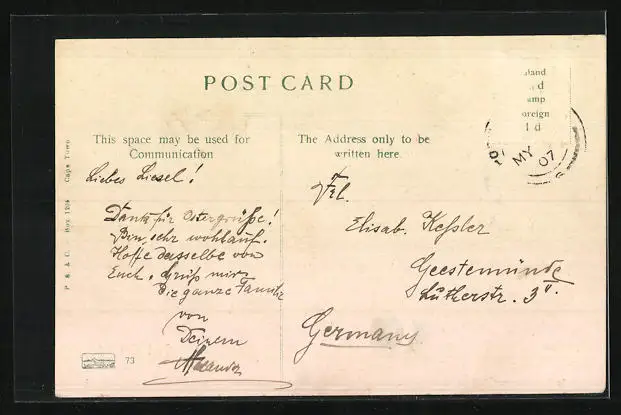 POST CARD
This space may be used for
Communication
The Address only to be
written here.
Inland
d
amp
oreign
1 d
MY
07
P & A C. Box 1208 Cape Town
Liebes Liesel!
Dank für Ostergrüsse!
Bin sehr wohlauf.
Hoffe dasselbe von
Euch. Grüß mir
die ganze Familie
von
Deinem
Frl.
Elisab. Keßler
Geestemünde
Lutherstr. 3
Germany
73